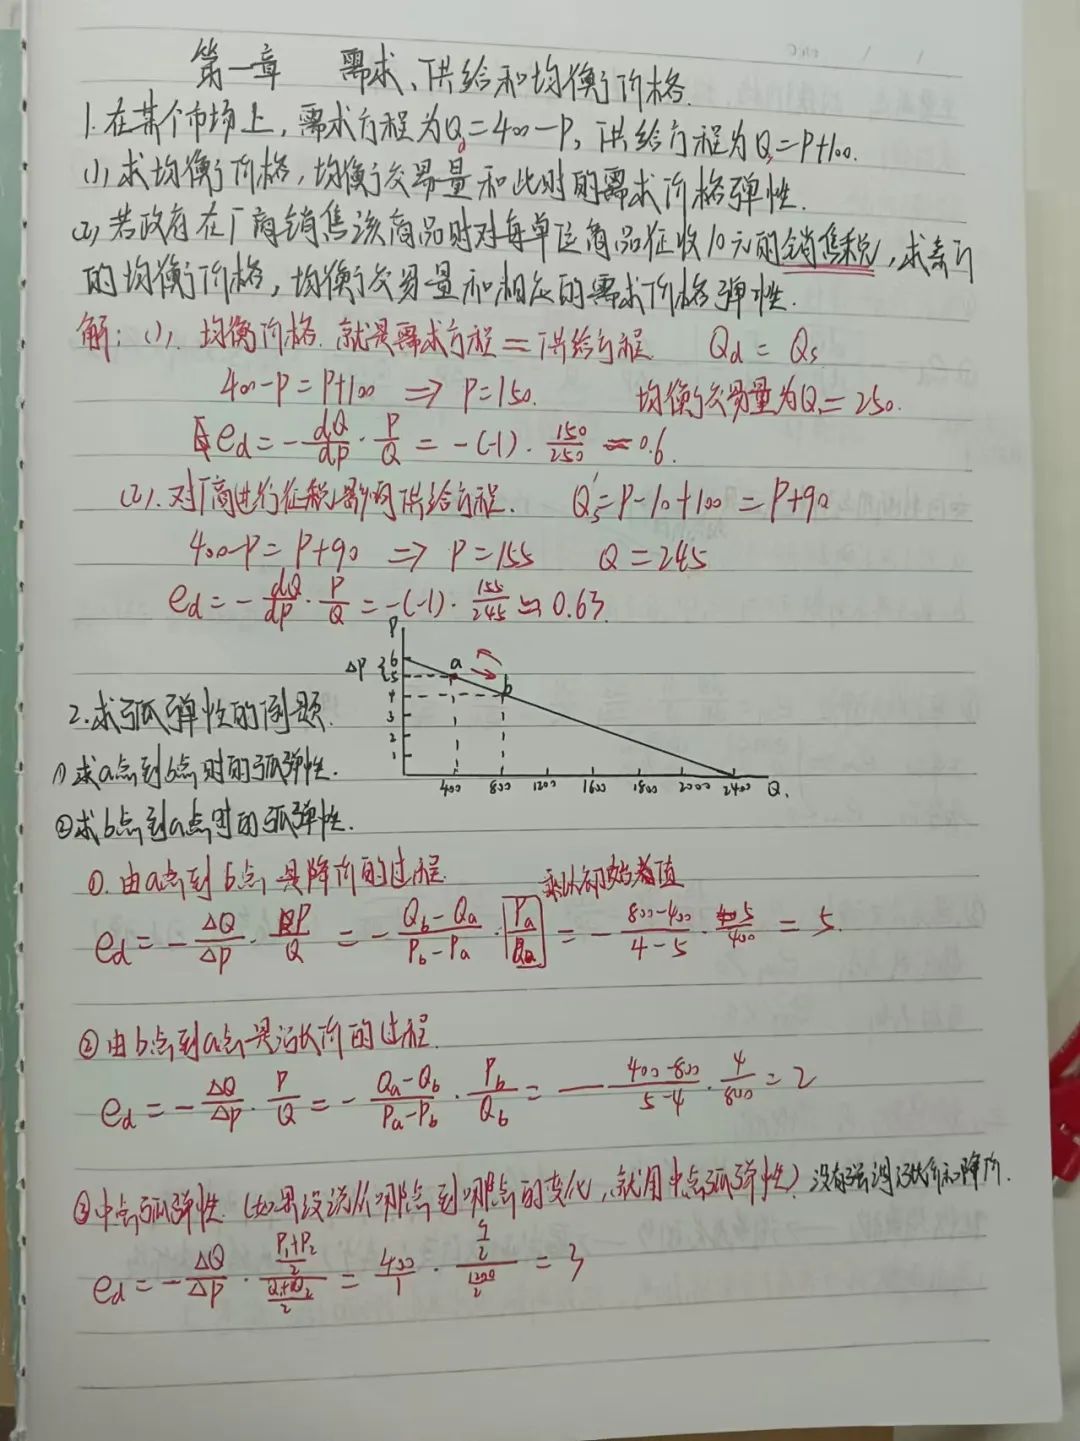 第一章 需求、供给和均衡价格.
1.在某个市场上,需求方程为Qd=400-P,供给方程为Qs=P+100.
(1),求均衡价格,均衡交易量和此时的需求价格弹性.
(2),若政府在厂商销售该商品时对每单位商品征收10元的销售税,求新的
的均衡价格,均衡交易量和相应的需求价格弹性.
解:(1). 均衡价格.就是需求方程=供给方程 Qd = Qs
400-P=P+100 ⟹ P=150. 均衡交易量为Q=250.
ed = -dQ/dP · P/Q = -(-1) · 150/250 = 0.6.
(2).对厂商进行征税影响供给方程. Qs'=P-10+100=P+90
400-P=P+90 ⟹ P=155 Q=245
ed = -dQ/dP · P/Q = -(-1) · 155/245 ≈ 0.63.
P
ΔP
6
5
4
3
2
1
a
b
400 800 1200 1600 1800 2000 2400 Q.
2.求弧弹性的例题.
①求a点到b点时的弧弹性.
②求b点到a点时的弧弹性.
①.由a点到b点是降价的过程.
乘以初始值
ed = -ΔQ/ΔP · P/Q = -(Qb-Qa)/(Pb-Pa) · Pa/Qa = -(800-400)/(4-5) · 5/400 = 5.
②由b点到a点是涨价的过程.
ed = -ΔQ/ΔP · P/Q = -(Qa-Qb)/(Pa-Pb) · Pb/Qb = -(400-800)/(5-4) · 4/800 = 2
③中点弧弹性.(如果没说从哪点到哪点的变化,就用中点弧弹性).没有强调涨价和降价.
ed = -ΔQ/ΔP · ((P1+P2)/2)/((Q1+Q2)/2) = 400/1 · (9/2)/(1200/2) = 3